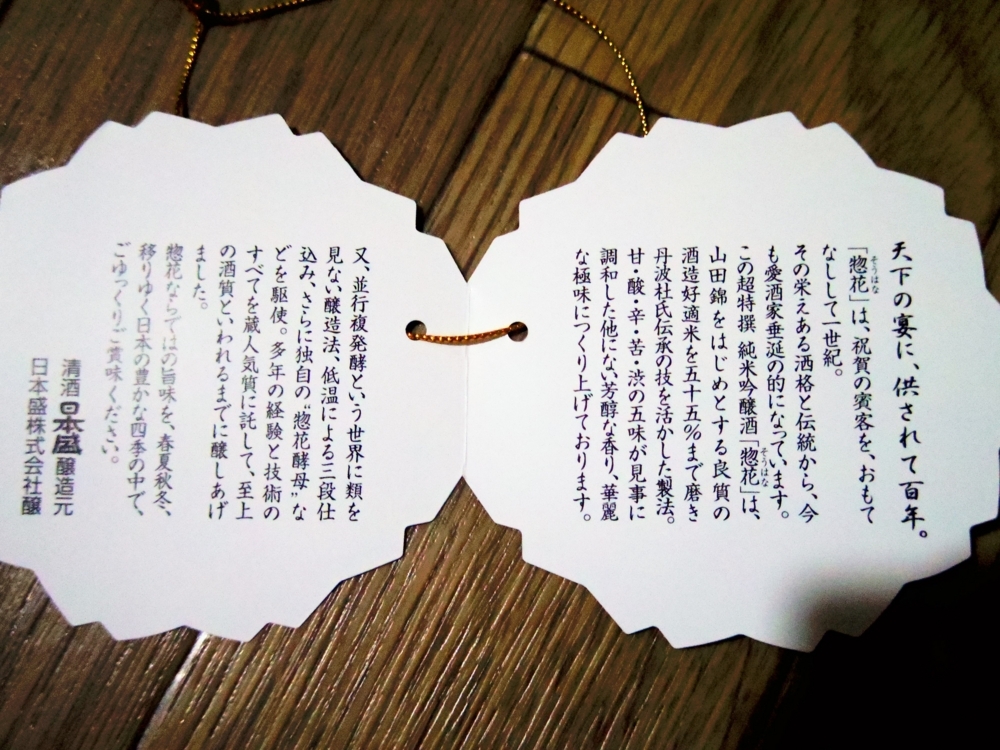 天下の宴に、供されて百年。
「惣花」は、祝賀の賓客を、おもて
そうはな
なしして一世紀。
その栄えある酒格と伝統から、今
も愛酒家垂涎の的になっています。
この超特撰 純米吟醸酒「惣花」は、
そうはな
山田錦をはじめとする良質の
酒造好適米を五十五%まで磨き
丹波杜氏伝承の技を活かした製法。
甘・酸・辛・苦・渋の五味が見事に
調和した他にない芳醇な香り、華麗
な極味につくり上げております。
又、並行複発酵という世界に類を
見ない醸造法、低温による三段仕
込み、さらに独自の"惣花酵母"な
どを駆使。多年の経験と技術の
すべてを蔵人気質に託して、至上
の酒質といわれるまでに醸しあげ
ました。
惣花ならではの旨味を、春夏秋冬、
移りゆく日本の豊かな四季の中で、
ごゆっくりご賞味ください。
清酒日本盛醸造元
日本盛株式会社醸